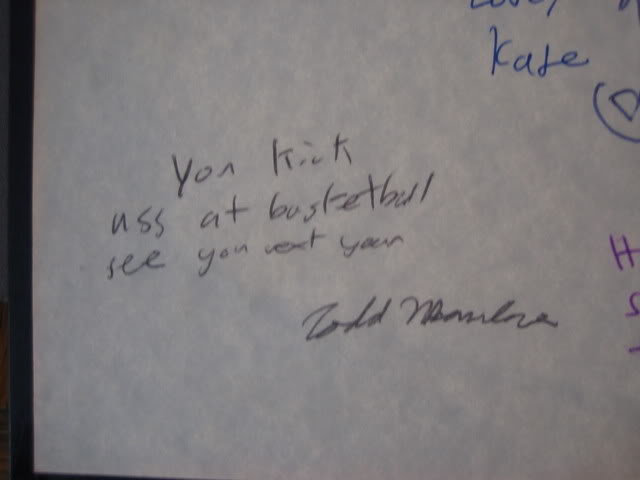 Kate
You kick
ass at basketball
see you next year
Todd
H